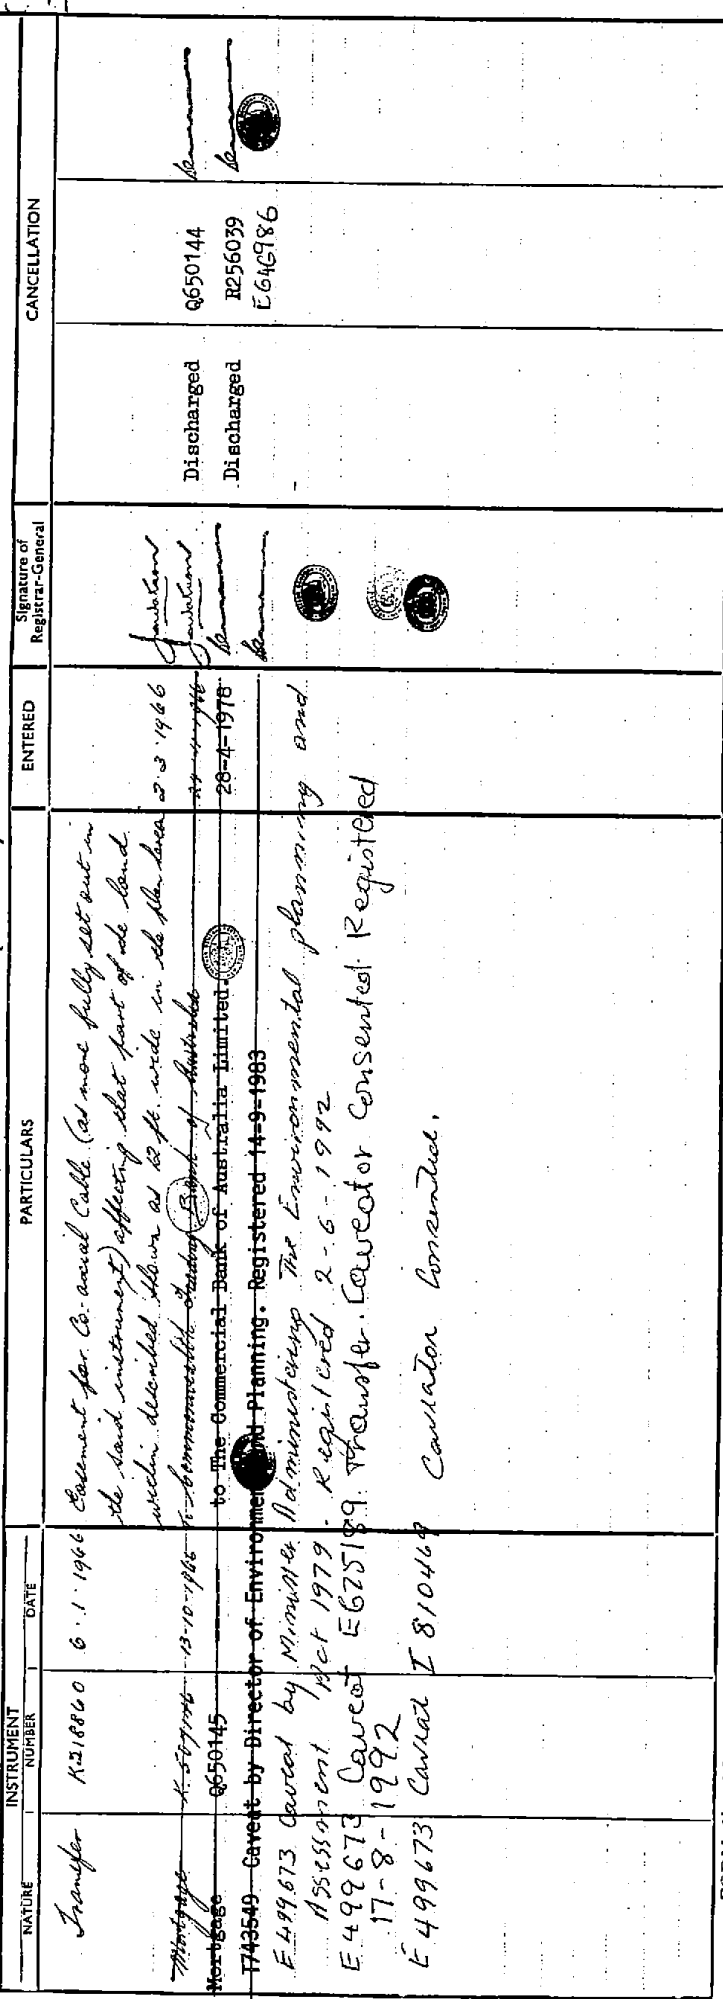 INSTRUMENT
NATURE NUMBER DATE PARTICULARS ENTERED Signature of Registrar-General CANCELLATION
Transfer K218860 6.1.1966 Easement for Co-axial Cable (as more fully set out in
the said instrument) affecting that part of the land
within described shown as 12 ft. wide in the plan hereon 2.3.1966
Mortgage 13-10-1966 to Commonwealth Trading Bank of Australia Discharged Q650144
Mortgage Q650145 to The Commercial Bank of Australia Limited. 28-4-1978 Discharged R256039
T743549 Caveat by Director of Environment and Planning. Registered 14-9-1983 E646986
E499673 Caveat by Minister Administering The Environmental planning and
Assessment Act 1979 - Registered 2-6-1992
E499673 Caveat E675189 Transfer. Caveator Consented Registered
17-8-1992
E499673 Caveat I 810469 Caveator Consented.